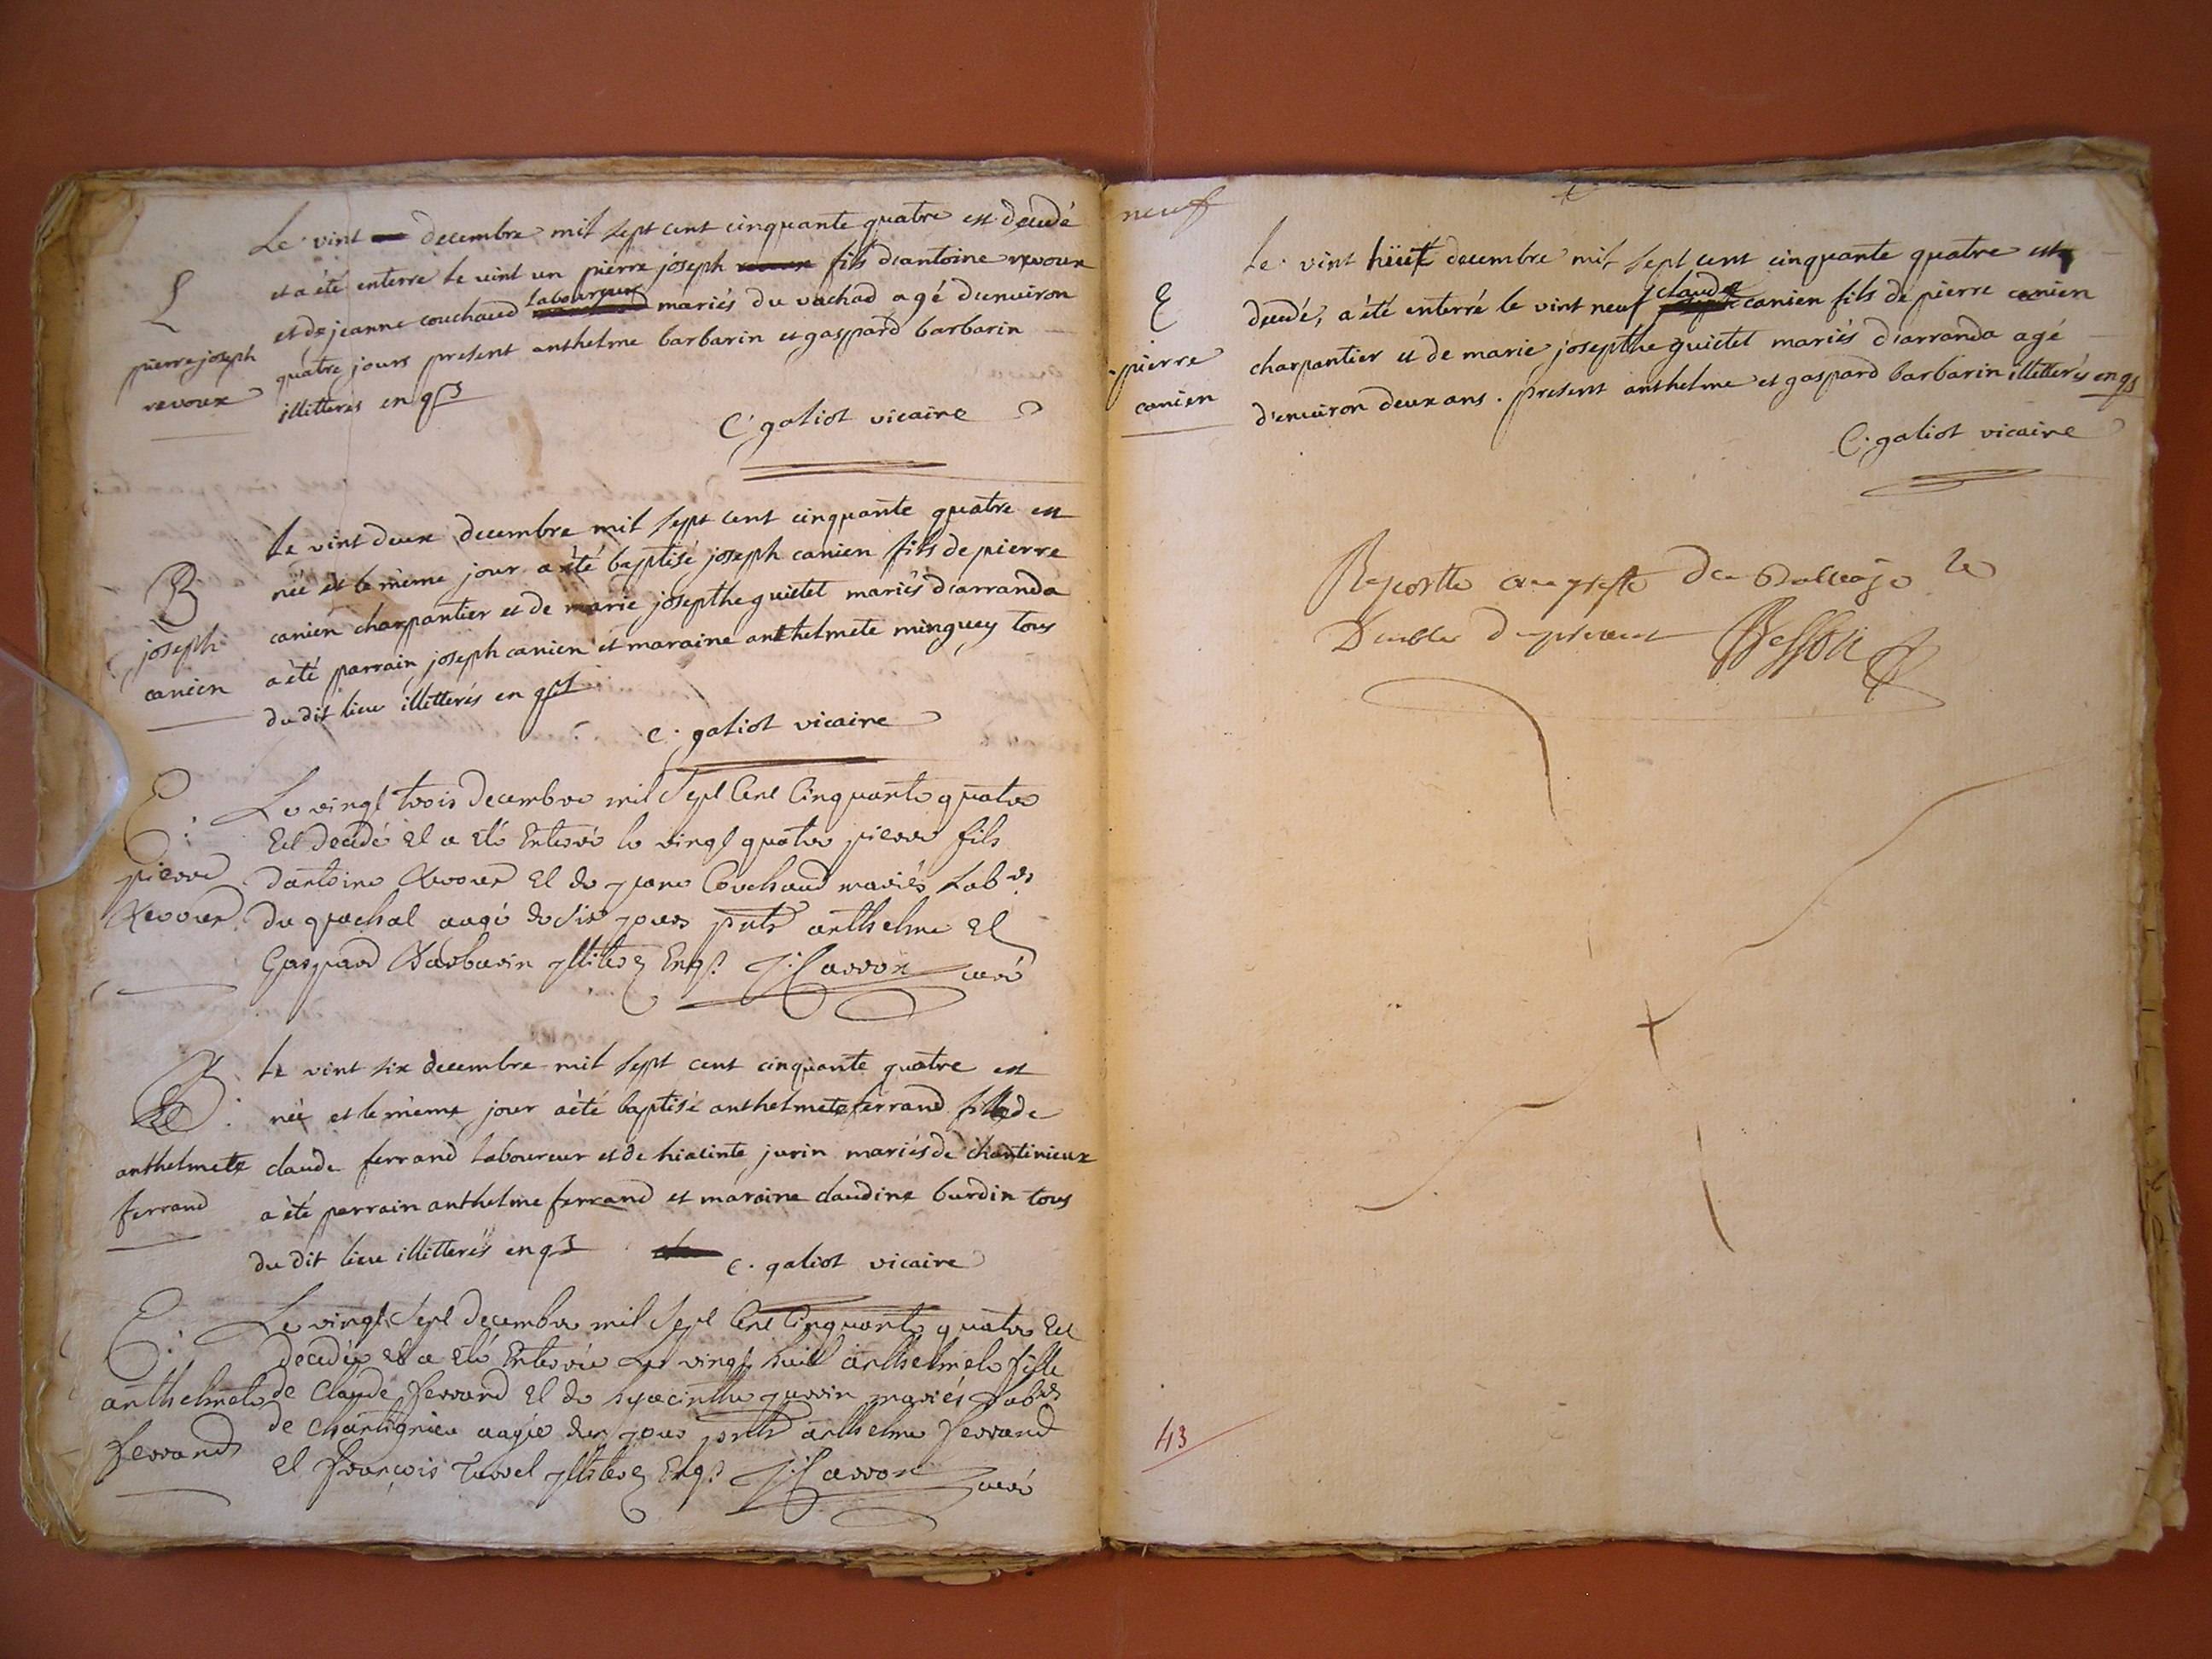 Le vint decembre mil sept cent cinquante quatre est decedé
et a été enterre le vint un pierre joseph fils d'antoine revoux
et de jeanne couchaud laboureurs mariés du vachad agé d'environ
quatre jours present anthelme barbarin et gaspard barbarin
illitterés enqs
C galiot vicaire
E
pierre joseph
revoux
Le vint deux decembre mil sept cent cinquante quatre est
née et le même jour a été baptisé joseph canien fils de pierre
canien charpantier et de marie josepthe guictet mariés d'arranda
a été parrain joseph canien et maraine anthelmete minguey tous
du dit lieu illitterés en qs
c. galiot vicaire
B
joseph
canien
Le vingt trois decembre mil Sept Cent Cinquante quatre
Est decedé Et a Eté Enterré le vingt quatre pierre fils
dantoine Revoux Et de jeane Couchaud mariés Labrs
du quachat aagé de six jours pnts anthelme Et
Gaspard Barbarin jlliterez Enqs J: Carron curé
E:
pierre
Revoux
Le vint six decembre mil sept cent cinquante quatre est
née et le même jour a été baptisé anthelmete ferrand fille de
claude ferrand laboureur et de hiacinte jurin mariés de chantinieux
a été parrain anthelme ferrand et maraine claudine burdin tous
du dit lieu illitterés enqs
c. galiot vicaire
B:
anthelmete
ferrand
Le vingt Sept decembre mil Sept Cent Cinquante quatre Est
decedée Et a Eté Enterrée Le vingt huit anthelmete fille
de Claude ferrand Et de hyacinthe jurrin mariés Labrs
de Chantignieu aagée dun jour pnts anthelme ferrand
Et françois jlliterez Enqs J: Carron curé
E:
anthelmete
ferrand
neuf
Le vint huit decembre mil sept cent cinquante quatre est
decedé, a été enterré le vint neuf claude canien fils de pierre canien
charpantier et de marie josepthe guictet mariés d'arranda agé
d'environ deux ans. present anthelme et gaspard barbarin illitterés enqs
C. galiot vicaire
E
pierre
canien
Raporté au greffe du Balliage le
Double du present Besson
43